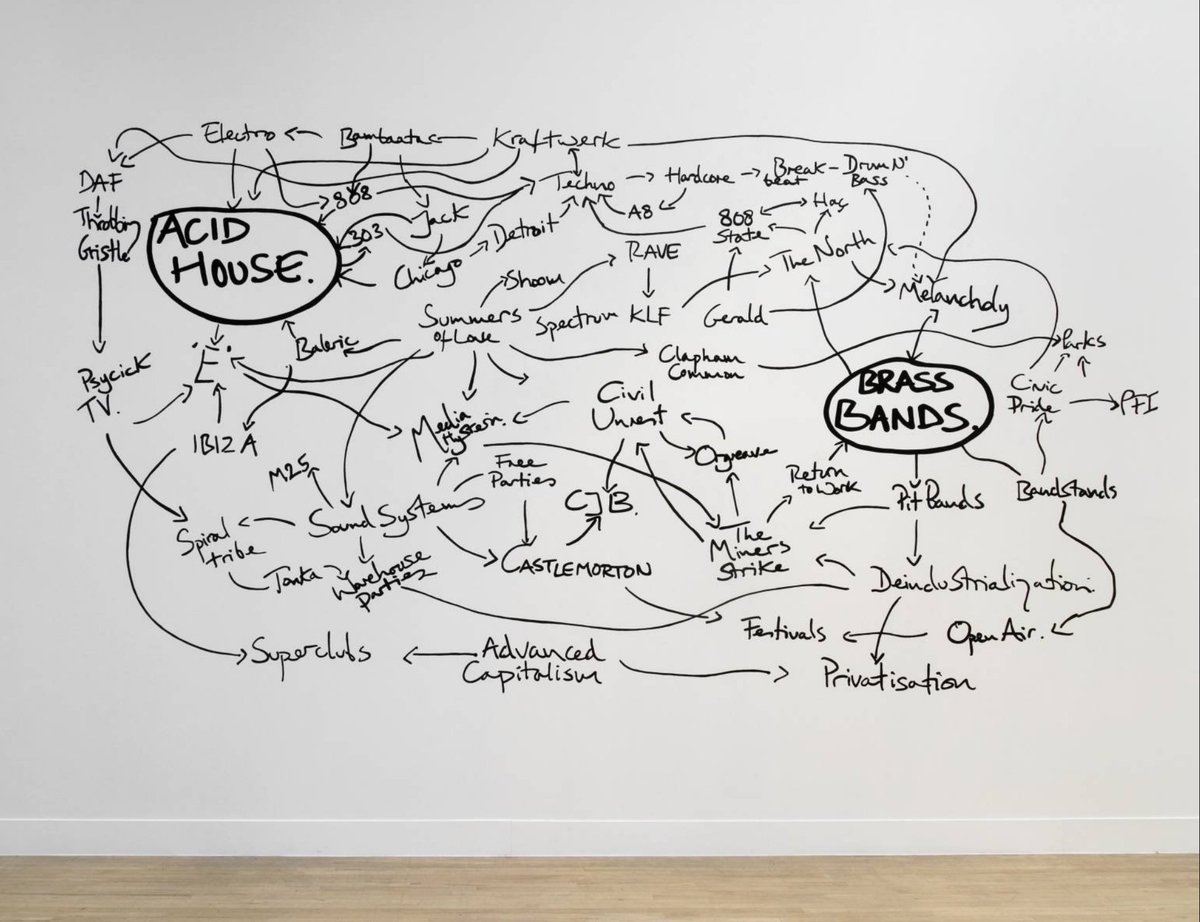 Electro
Bambaataa
Kraftwerk
DAF
Throbbing
Gristle
ACID
HOUSE.
808
303
Jack
Chicago
Detroit
Techno
Hardcore
Break-
beat
Drum N'
Bass
A8
808
State
Haç
RAVE
The North
Shoom
Summers
of Love
Spectrum
KLF
Gerald
Melancholy
Baleric
'E'.
Clapham
Common
Parks
Psycick
TV.
IBIZA
Media
Hysteria.
Civil
Unrest
BRASS
BANDS.
Civic
Pride
PFI
M25
Free
Parties
Orgreave
Return
to Work
Pit Bands
Bandstands
Sound Systems
CJB.
Spiral
tribe
Tonka
Warehouse
Parties
CASTLEMORTON
The
Miners
Strike
Deindustrialization
Festivals
Open Air.
Superclubs
Advanced
Capitalism
Privatisation